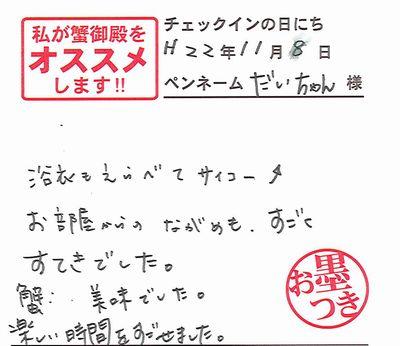 私が蟹御殿を
オススメ
します!!
チェックインの日にち
H22年11月8日
ペンネーム だいちゃん 様
浴衣もえらべてサイコー↑
お部屋からのながめも、すごく
すてきでした。
蟹:美味でした。
楽しい時間をすごせました。
お墨つき